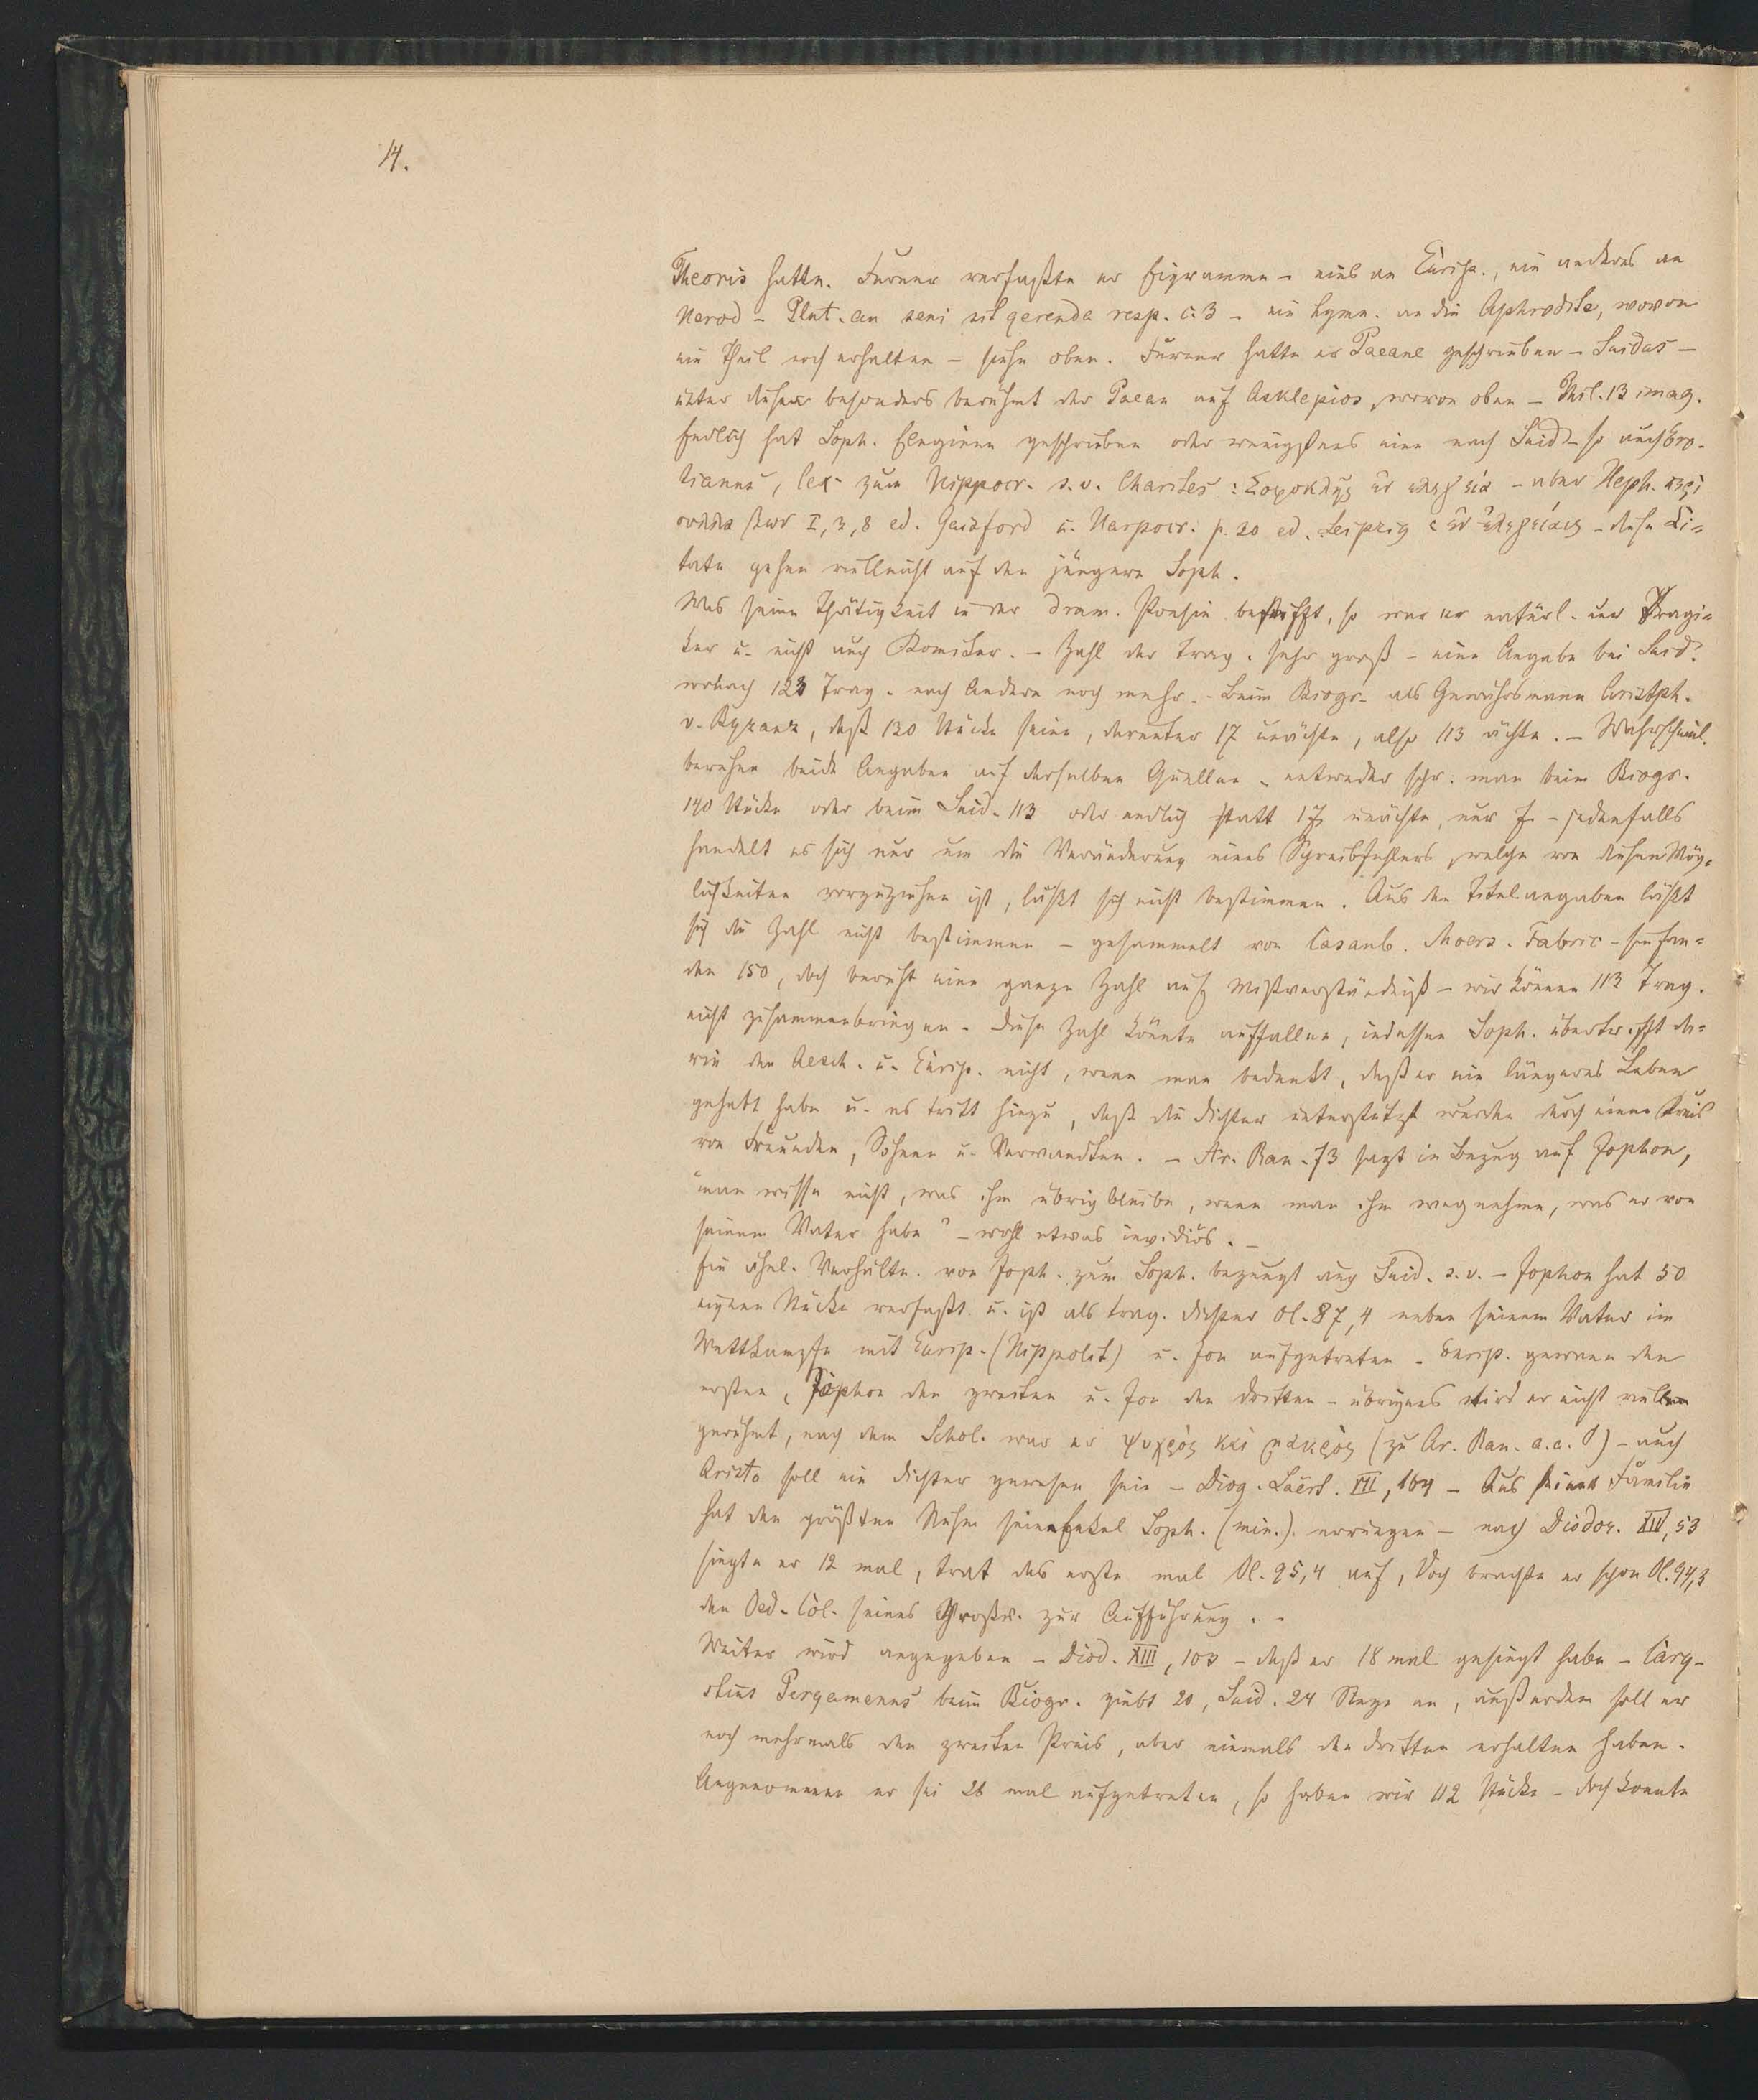 14.
Theoris hatte. Ferner verfaßte er Epigramme – eines an Eurip., ein anderes an
Herod – Plut. an seni sit gerenda resp. c. 3 – ein Hymn. an die Aphrodite, wovon
ein Theil noch erhalten – siehe oben. Ferner hatte er Paeane geschrieben – Suidas –
unter diesen besonders berühmt der Paean auf Asklepios, wovon oben – Phil. 13 imag.
Endlich hat Soph. Elegieen geschrieben oder wenigstens eine nach Suid – so auch Ero-
tianus, lex. zum Hippocr. s. v. Charites: Σοφοκλῆς ἐν ελεγεία – aber Heph. περὶ
I, 3, 8 ed. Gaisford u. Harpocr. p. 20 ed. Leipzig ἐν ἐλεγείαις – diese Ci-
tate gehen vielleicht auf den jüngern Soph.
Was seine Thätigkeit in der dram. Poesie betrifft, so war er natürl. nur Tragi-
ker u. nicht auch Komiker. – Zahl der Trag. sehr groß – eine Angabe bei Suid.
wonach 123 Trag. nach Andern noch mehr. – Beim Biogr. als Gewährsmann Aristph.
v. Byzanz, daß 130 Stücke seien, darunter 17 unächte, also 113 ächte. – Wahrscheinl.
beruhen beide Angaben auf derselben Quellen – entweder schr. man beim Biogr.
140 Stücke oder beim Suid. 113 oder endlich statt 17 unächte, nur 7 – jedenfalls
handelt es sich nur um die Veränderung eines Schreibfehlers, welche von diesen Mög-
lichkeiten vorzuziehen ist, läßt sich nicht bestimmen. Aus den Titelangaben läßt
sich die Zahl nicht bestimmen – gesammelt von Casaub. Moers. Fabric – sie fan-
den 150, doch beruht eine ganze Zahl auf Mißverständniß – wir können 113 Trag.
nicht zusammenbringen. Diese Zahl könnte auffallen, indessen Soph. übertrifft da-
rin den Aesch. u. Eurip. nicht, wenn man bedenkt, daß er ein längeres Leben
gehabt habe u. es tritt hinzu, daß die Dichter unterstützt wurden durch einen Kreis
von Freunden, Söhnen u. Verwandten. – Ar. Ran. 73 sagt in Bezug auf Jophon,
"man wisse nicht, was ihm übrig bleibe, wenn man ihm wegnehme, was er von
seinem Vater habe" – wohl etwas invidiös. –
Ein ähnl. Verhältn. von Joph. zum Soph. bezeugt auch Suid. s. v. – Jophon hat 50
eigene Stücke verfaßt u. ist als trag. Dichter Ol. 87, 4 neben seinem Vater im
Wettkampfe mit Eurip. (Hippolit) u. Jon aufgetreten. Eurip. gewann den
ersten, Jophon den zweiten u. Jon den dritten – übrigens wird er nicht
gerühmt, nach dem Schol. war er ψυχρὸς καὶ μακρὸς (zu Ar. Ran. a. a. O) – auch
Aristo soll ein Dichter gewesen sein – Diog. Laërt. VII, 164 – Aus seiner Familie
hat den größten Ruhm sein Enkel Soph. (min.) errungen – nach Diodor. XIV, 53
siegte er 12 mal, trat das erste mal Ol. 95,4 auf, doch brachte er schon Ol. 94,3
den Oed. Col. seines Großv. zur Aufführung. –
Weiter wird angegeben – Diod. XIII, 103 – daß er 18 mal gesiegt habe – Cary-
stius Pergamenus beim Biogr. giebt 20, Suid. 24 Siege an, außerdem soll er
noch mehrmals den zweiten Preis, aber niemals den dritten erhalten haben.
Angenommen er sei 28 mal aufgetreten, so haben wir 112 Stücke – doch konnte